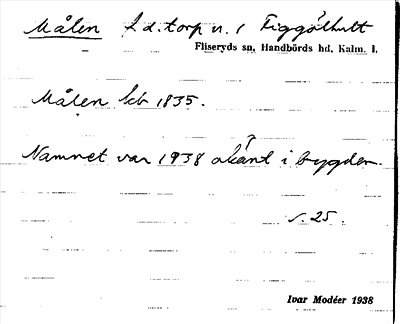 Målen f d. torp u. 1 Tiggölhult
Fliseryds sn, Handbörds hd, Kalm. l.
Målen kb 1835.
Namnet var 1938 okänt i bygden.
s. 25.
Ivar Modéer 1938